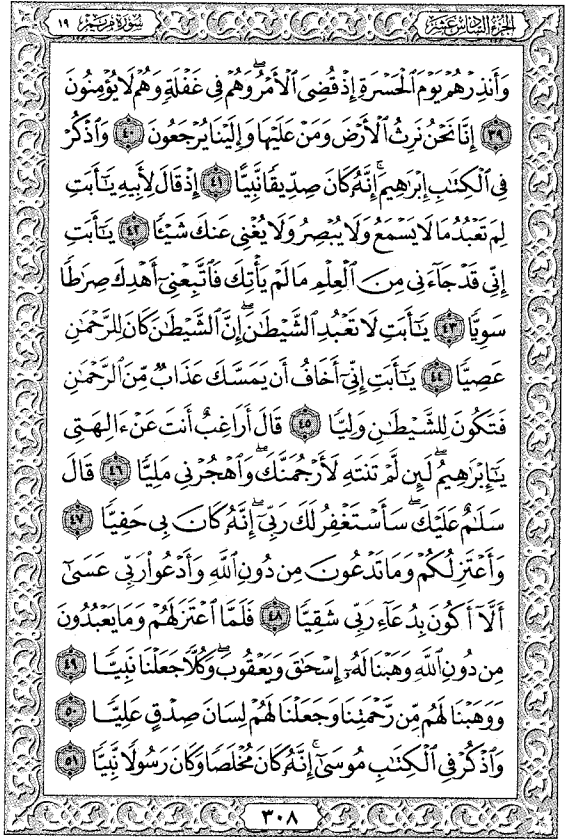 الجزء السادس عشر
سورة مريم ١٩
وَأَنذِرْهُمْ يَوْمَ الْحَسْرَةِ إِذْ قُضِيَ الْأَمْرُ وَهُمْ فِي غَفْلَةٍ وَهُمْ لَا يُؤْمِنُونَ
٣٩ إِنَّا نَحْنُ نَرِثُ الْأَرْضَ وَمَنْ عَلَيْهَا وَإِلَيْنَا يُرْجَعُونَ ٤٠ وَاذْكُرْ
فِي الْكِتَٰبِ إِبْرَٰهِيمَ ۚ إِنَّهُ كَانَ صِدِّيقًا نَّبِيًّا ٤١ إِذْ قَالَ لِأَبِيهِ يَٰٓأَبَتِ
لِمَ تَعْبُدُ مَا لَا يَسْمَعُ وَلَا يُبْصِرُ وَلَا يُغْنِي عَنكَ شَيْـًٔا ٤٢ يَٰٓأَبَتِ
إِنِّي قَدْ جَآءَنِي مِنَ الْعِلْمِ مَا لَمْ يَأْتِكَ فَاتَّبِعْنِيٓ أَهْدِكَ صِرَٰطًا
سَوِيًّا ٤٣ يَٰٓأَبَتِ لَا تَعْبُدِ الشَّيْطَٰنَ ۖ إِنَّ الشَّيْطَٰنَ كَانَ لِلرَّحْمَٰنِ
عَصِيًّا ٤٤ يَٰٓأَبَتِ إِنِّيٓ أَخَافُ أَن يَمَسَّكَ عَذَابٌ مِّنَ الرَّحْمَٰنِ
فَتَكُونَ لِلشَّيْطَٰنِ وَلِيًّا ٤٥ قَالَ أَرَاغِبٌ أَنتَ عَنْ ءَالِهَتِي
يَٰٓإِبْرَٰهِيمُ ۖ لَئِن لَّمْ تَنتَهِ لَأَرْجُمَنَّكَ ۖ وَاهْجُرْنِي مَلِيًّا ٤٦ قَالَ
سَلَٰمٌ عَلَيْكَ ۖ سَأَسْتَغْفِرُ لَكَ رَبِّيٓ ۖ إِنَّهُ كَانَ بِي حَفِيًّا ٤٧
وَأَعْتَزِلُكُمْ وَمَا تَدْعُونَ مِن دُونِ اللَّهِ وَأَدْعُوا۟ رَبِّي عَسَىٰٓ
أَلَّآ أَكُونَ بِدُعَآءِ رَبِّي شَقِيًّا ٤٨ فَلَمَّا اعْتَزَلَهُمْ وَمَا يَعْبُدُونَ
مِن دُونِ اللَّهِ وَهَبْنَا لَهُۥٓ إِسْحَٰقَ وَيَعْقُوبَ ۖ وَكُلًّا جَعَلْنَا نَبِيًّا ٤٩
وَوَهَبْنَا لَهُم مِّن رَّحْمَتِنَا وَجَعَلْنَا لَهُمْ لِسَانَ صِدْقٍ عَلِيًّا ٥٠
وَاذْكُرْ فِي الْكِتَٰبِ مُوسَىٰٓ ۚ إِنَّهُ كَانَ مُخْلَصًا وَكَانَ رَسُولًا نَّبِيًّا ٥١
٣٠٨